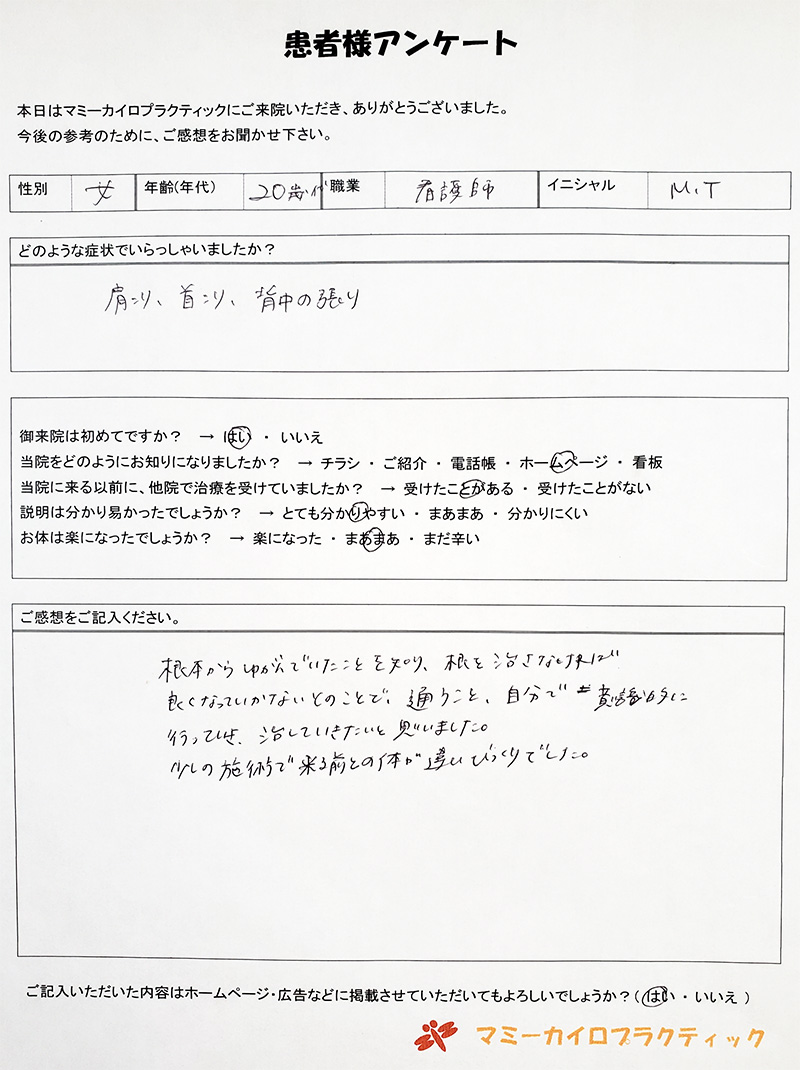 患者様アンケート
本日はマミーカイロプラクティックにご来院いただき、ありがとうございました。
今後の参考のために、ご感想をお聞かせ下さい。
性別 女 年齢(年代) 20歳代 職業 看護師 イニシャル M.T
どのような症状でいらっしゃいましたか？
肩こり、首こり、背中の張り
御来院は初めてですか？ → はい ・ いいえ
当院をどのようにお知りになりましたか？ → チラシ ・ ご紹介 ・ 電話帳 ・ ホームページ ・ 看板
当院に来る以前に、他院で治療を受けていましたか？ → 受けたことがある ・ 受けたことがない
説明は分かり易かったでしょうか？ → とても分かりやすい ・ まあまあ ・ 分かりにくい
お体は楽になったでしょうか？ → 楽になった ・ まあまあ ・ まだ辛い
ご感想をご記入ください。
根本からゆがんでいたことを知り、根を治さなければ
良くなっていかないとのことで、通うこと、自分で意識的に
行っていき、治していきたいと思いました。
少しの施術で来る前との体が違いびっくりでした。
ご記入いただいた内容はホームページ・広告などに掲載させていただいてもよろしいでしょうか？（ はい ・ いいえ ）
マミーカイロプラクティック